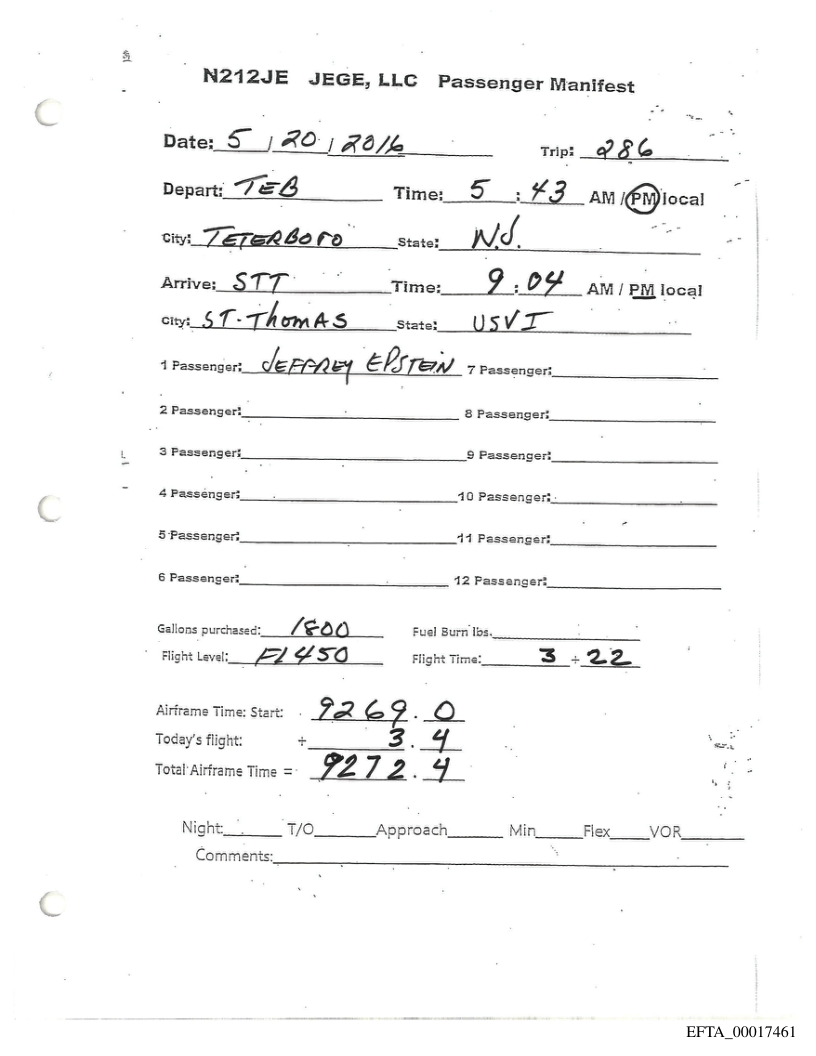 N212JE JEGE, LLC Passenger Manifest
Date: 5 / 20 / 2016 Trip: 286
Depart: TEB Time: 5 : 43 AM / PM local
City: TETERBORO State: N.J.
Arrive: STT Time: 9 : 04 AM / PM local
City: ST-THOMAS State: USVI
1 Passenger: JEFFREY EPSTEIN 7 Passenger:
2 Passenger: 8 Passenger:
3 Passenger: 9 Passenger:
4 Passenger: 10 Passenger:
5 Passenger: 11 Passenger:
6 Passenger: 12 Passenger:
Gallons purchased: 1800 Fuel Burn lbs.
Flight Level: FL450 Flight Time: 3 + 22
Airframe Time: Start: 9269.0
Today's flight: + 3.4
Total Airframe Time = 9272.4
Night: T/O Approach Min Flex VOR
Comments:
EFTA_00017461